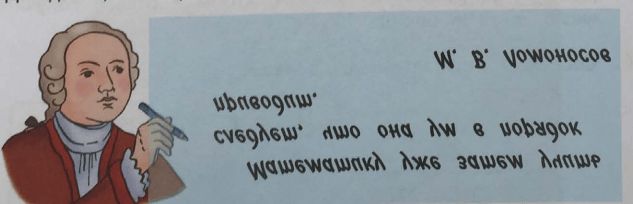 Математику уже затем учить
следует, что она ум в порядок
приводит.
М. В. Ломоносов